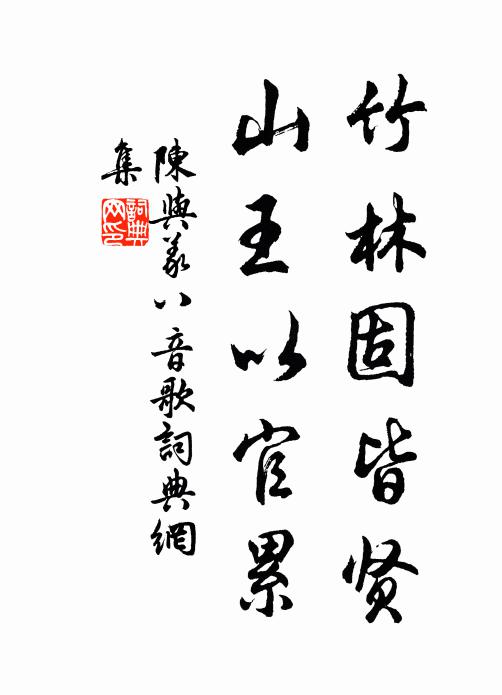 竹林固皆贤
山王以官累
陳與義八音歌詞典網
集
詞典网印